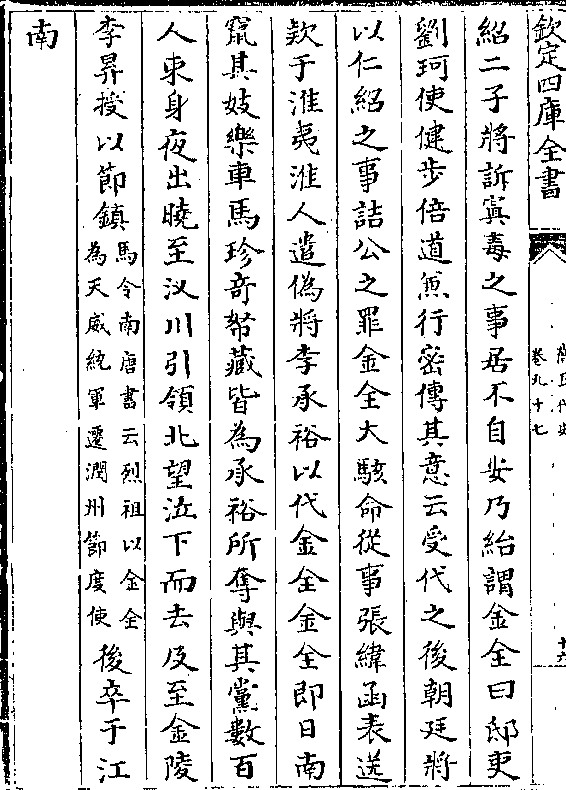 欽定四庫全書
卷九十七
紹二子將訴寘毒之事居不自安乃紿謂金全曰邸吏
劉珂使健步倍道兼行密傳其意云受代之後朝廷將
以仁紹之事詰公之罪金全大駭命從事張緯函表送
欵于淮夷淮人遣偽將李承裕以代金全金全即日南
竄其妓樂車馬珍奇帑藏皆為承裕所奪與其黨數百
人束身夜出曉至汊川引領北望泣下而去及至金陵
李昇授以節鎮
馬令南唐書云烈祖以金全
為天威統軍遷潤州節度使
後卒于江
南